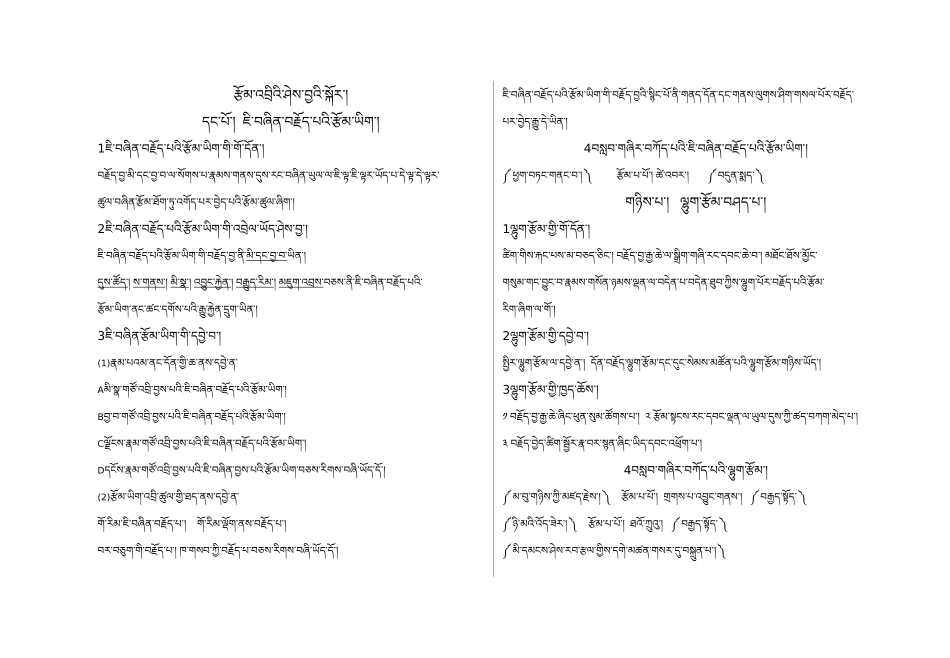 རྩོམ་འབྲིའི་ཤེས་བྱའི་སྐོར།
དང་པོ། ཇི་བཞིན་བརྗོད་པའི་རྩོམ་ཡིག།
1ཇི་བཞིན་བརྗོད་པའི་རྩོམ་ཡིག་གི་གོ་དོན།
བརྗོད་བྱ་མི་དང་བྱ་བ་ལ་སོགས་པ་རྣམས་གནས་དུས་རང་བཞིན་ཡུལ་ལ་ཇི་ལྟ་ཇི་ལྟར་ཡོད་པ་དེ་ལྟ་དེ་ལྟར་
ཚུལ་བཞིན་རྩོམ་ཐོག་ཏུ་འགོད་པར་བྱེད་པའི་རྩོམ་ཚུལ་ཞིག།
2ཇི་བཞིན་བརྗོད་པའི་རྩོམ་ཡིག་གི་འབྲེལ་ཡོད་ཤེས་བྱ།
ཇི་བཞིན་བརྗོད་པའི་རྩོམ་ཡིག་གི་བརྗོད་བྱ་ནི་མི་དང་བྱ་བ་ཡིན།
དུས་ཚོད། ས་གནས། མི་སྣ། འབྱུང་རྐྱེན། བརྒྱུད་རིམ། མཇུག་འབྲས་བཅས་ནི་ཇི་བཞིན་བརྗོད་པའི་
རྩོམ་ཡིག་ནང་ཚང་དགོས་པའི་རྒྱུ་རྐྱེན་དྲུག་ཡིན།
3ཇི་བཞིན་རྩོམ་ཡིག་གི་དབྱེ་བ།
(1)རྣམ་པའམ་ནང་དོན་གྱི་ཆ་ནས་དབྱེ་ན་
Aམི་སྣ་གཙོ་འབྲི་བྱས་པའི་ཇི་བཞིན་བརྗོད་པའི་རྩོམ་ཡིག།
Bབྱ་བ་གཙོ་འབྲི་བྱས་པའི་ཇི་བཞིན་བརྗོད་པའི་རྩོམ་ཡིག།
Cལྗོངས་རྣམ་གཙོ་འབྲི་བྱས་པའི་ཇི་བཞིན་བརྗོད་པའི་རྩོམ་ཡིག།
Dདངོས་རྣམ་གཙོ་འབྲི་བྱས་པའི་ཇི་བཞིན་བྱས་པའི་རྩོམ་ཡིག་བཅས་རིགས་བཞི་ཡོད་དོ།
(2)རྩོམ་ཡིག་འབྲི་ཚུལ་གྱི་ཐད་ནས་དབྱེ་ན་
གོ་རིམ་ཇི་བཞིན་བརྗོད་པ། གོ་རིམ་ལྡོག་ནས་བརྗོད་པ།
བར་བཅུག་གི་བརྗོད་པ། ཁ་གསབ་ཀྱི་བརྗོད་པ་བཅས་རིགས་བཞི་ཡོད་དོ།
ཇི་བཞིན་བརྗོད་པའི་རྩོམ་ཡིག་གི་བརྗོད་བྱའི་སྙིང་པོ་ནི་གནད་དོན་དང་གནས་ལུགས་ཤིག་གསལ་པོར་བརྗོད་
པར་བྱེད་རྒྱུ་དེ་ཡིན།
4བསླབ་གཞིར་བཀོད་པའི་ཇི་བཞིན་བརྗོད་པའི་རྩོམ་ཡིག།
༼ཕྱག་བཏང་གནང་བ།༽ རྩོམ་པ་པོ། ཚེ་འབར། ༼བདུན་སྨད་༽
གཉིས་པ། ལྷུག་རྩོམ་བཤད་པ།
1ལྷུག་རྩོམ་གྱི་གོ་དོན།
ཚིག་གིས་རྐང་པས་མ་བཅད་ཅིང་། བརྗོད་བྱ་རྒྱ་ཆེ་ལ་སྒྲིག་གཞི་རང་དབང་ཆེ་བ། མཐོང་ཐོས་མྱོང་
གསུམ་གང་བྱུང་བ་རྣམས་གསོན་ཉམས་ལྡན་ལ་བདེན་པ་བདེན་ཐུབ་ཀྱིས་ལྷུག་པོར་བརྗོད་པའི་རྩོམ་
རིག་ཞིག་ལ་གོ།
2ལྷུག་རྩོམ་གྱི་དབྱེ་བ།
སྤྱིར་ལྷུག་རྩོམ་ལ་དབྱེ་ན། དོན་བརྗོད་ལྷུག་རྩོམ་དང་དུང་སེམས་མཚོན་པའི་ལྷུག་རྩོམ་གཉིས་ཡོད།
3ལྷུག་རྩོམ་གྱི་ཁྱད་ཆོས།
༡ བརྗོད་བྱ་རྒྱ་ཆེ་ཞིང་ཕུན་སུམ་ཚོགས་པ། ༢ རྩོམ་སྟངས་རང་དབང་ལྡན་ལ་ཡུལ་དུས་ཀྱི་ཚད་བཀག་མེད་པ།
༣ བརྗོད་བྱེད་ཚིག་སྦྱོར་རྣ་བར་སྙན་ཞིང་ཡིད་དབང་འཕྲོག་པ།
4བསླབ་གཞིར་བཀོད་པའི་ལྷུག་རྩོམ།
༼མ་བུ་གཉིས་ཀྱི་མཛད་རྗེས།༽ རྩོམ་པ་པོ། གྲགས་པ་འབྱུང་གནས། ༼བརྒྱད་སྟོད་༽
༼ཉི་མའི་འོད་ཟེར།༽ རྩོམ་པ་པོ། ཐའོ་ཀྲུའུ། ༼བརྒྱད་སྟོད་༽
༼མི་དམངས་ཤེས་རབ་རྩལ་གྱིས་དགེ་མཚན་གསར་དུ་བསྐྲུན་པ།༽